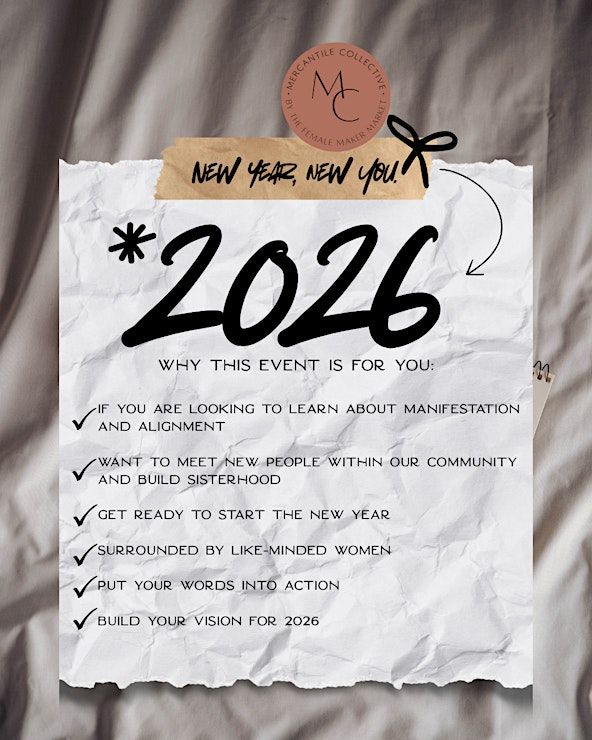 MERCANTILE COLLECTIVE
MC
BY THE FEMALE MAKER MARKET
NEW YEAR, NEW YOU.
*2026
WHY THIS EVENT IS FOR YOU:
IF YOU ARE LOOKING TO LEARN ABOUT MANIFESTATION
AND ALIGNMENT
WANT TO MEET NEW PEOPLE WITHIN OUR COMMUNITY
AND BUILD SISTERHOOD
GET READY TO START THE NEW YEAR
SURROUNDED BY LIKE-MINDED WOMEN
PUT YOUR WORDS INTO ACTION
BUILD YOUR VISION FOR 2026